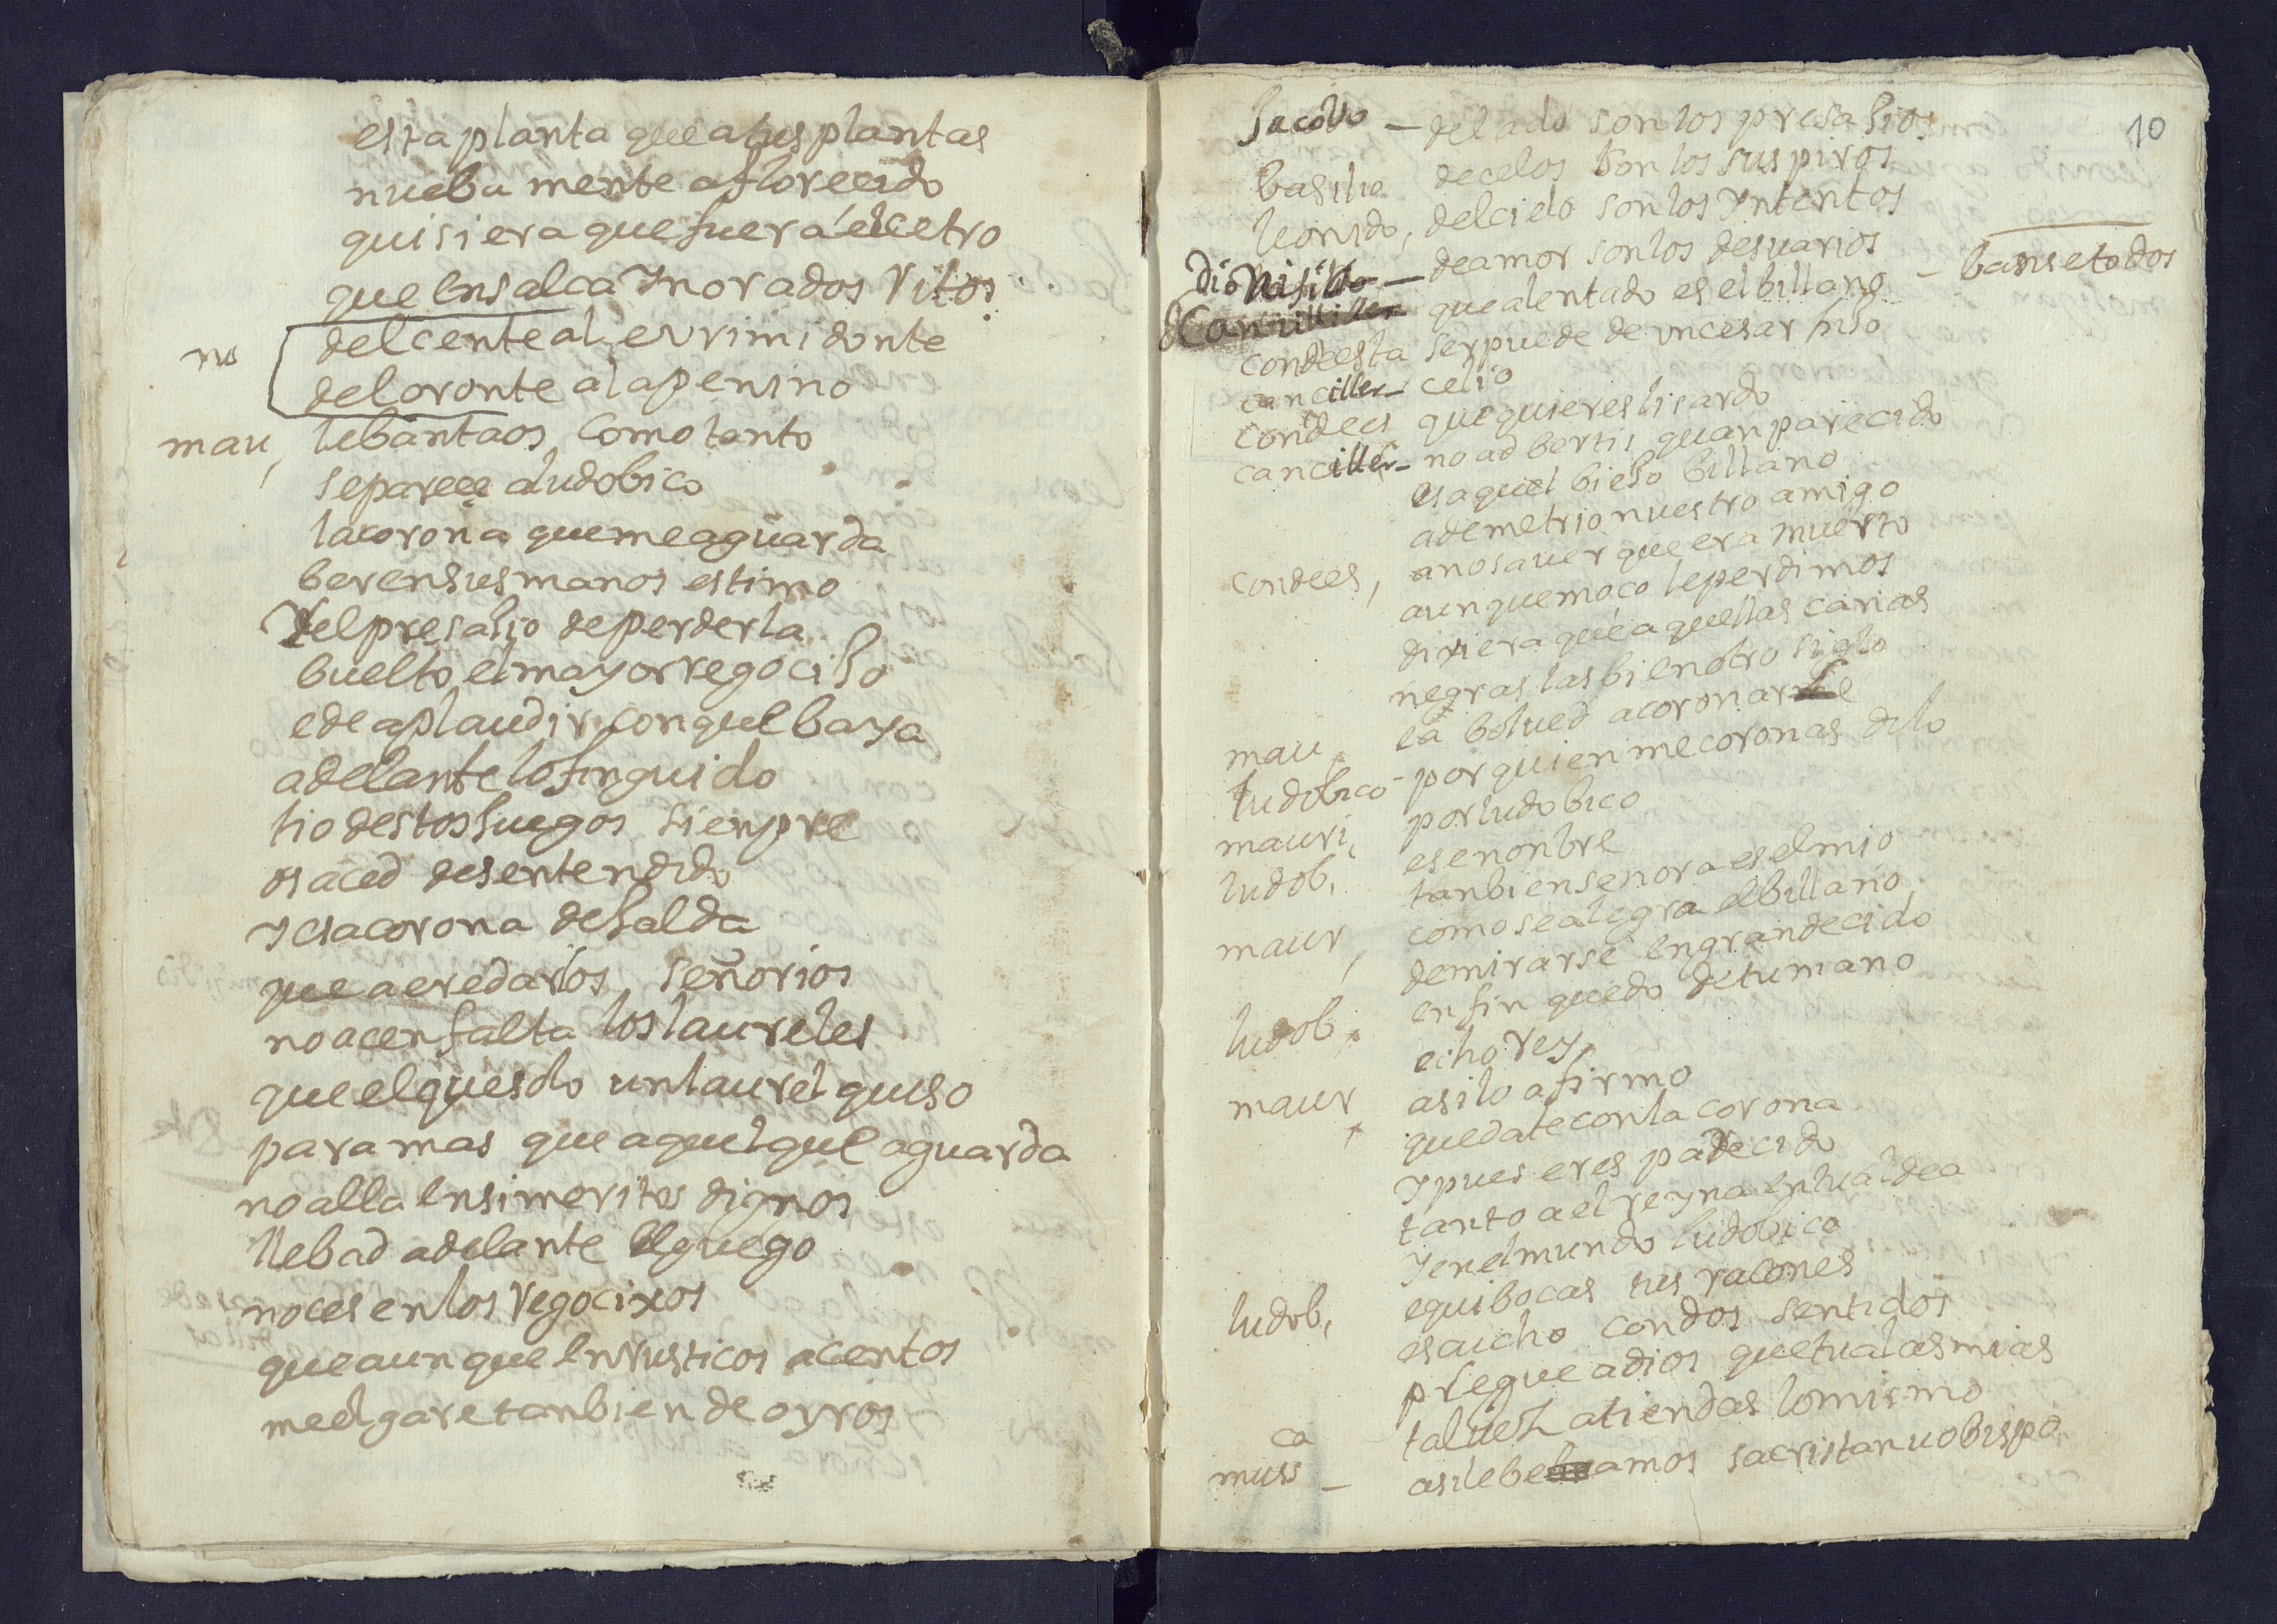 esta planta que a tus plantas
nueba mente a florecido
quisiera que fuera el cetro
que ensalca Y norados Ritos
no del cente al errimidonte
del oronte al apenino
mau, lebantaos como tanto
se parece a ludobico
la corona que me aguarda
ber en sus manos estimo
Y el presahio de perderla
buelto el mayor regociho
e de aplaudir con que baya
adelante lo finguido
tio destos huegos sienpre
os aced desentendido
y esa corona dehalda
que a eredarlos señorios
no acen falta los laureles
que el que solo un laurel quiso
para mas que aquel que aguarda
no alla en si meritos dignos
llebad adelante el guego
no cesen los regocixos
que aunque en rusticos acentos
me olgare tanbien de oyros
10
Jacobo – del ado son los presahios
basilio de celos son los suspiros
leonido, del cielo son los yntentos
Dionisio – de amor son los desuarios
canciller que alentado es el billano – banse todos
condesta ser puede de un cesar hiho
canciller – celio
condes que quieres lisardo
canciller – no adbertis quan parecido
es aquel bieho billano
a demetrio nuestro amigo
condes, a no sauer que era muerto
aunque moco le perdimos
dixiera que aquellas canas
negras las bi en otro siglo
mau, ea bolued a coronarle
ludobico – por quien me coronas dilo
mauri, por ludobico
ludob, ese nonbre
tanbien senora es el mio
maur, como se alegra el billano
de mirarse engrandecido
ludob, en fin quedo de tu mano
echo Rey
maur, asi lo afirmo
quedate con la corona
y pues eres parecido
tanto a el reyna en tu aldea
y en el mundo ludobico
ludob, equibocas tus racones
escucho con dos sentidos
plegue a dios que tu a las mias
tal uez atiendas lo mismo
ca
muss – asi lebe amos sacristan u obispo